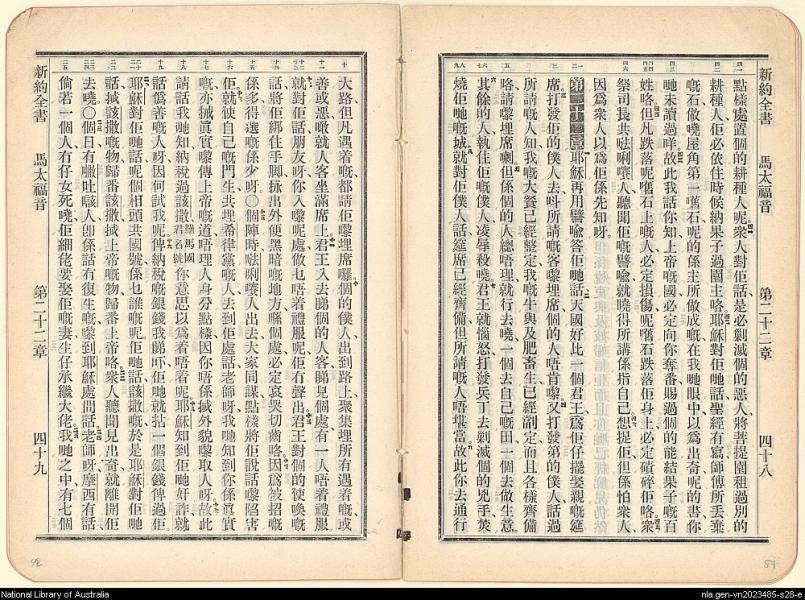 新約全書 馬太福音 第二十二章 四十八
點樣處置個的耕種人呢衆人對佢話是必剿滅個的惡人將菩提園租過別的
耕種人佢必依住時候納果子過園主咯耶穌對佢哋話聖經有寫師傅所丟棄
嘅石做嘵屋角第一嘅石呢的係主所做成嘅在我哋眼中以爲出奇呢的書你
哋未讀過咩故此我話你知上帝嘅國必定向你奪番賜過個的能結果子嘅百
姓咯但凡跌落呢嚿石上嘅人必定損傷呢嚿石跌落佢身上必定磧碎佢咯衆
祭司長共呿唎嚷人聽聞佢嘅譬喩就曉得所講係指自己想捉佢但係怕衆人
因爲衆人以爲佢係先知呀
第二十二章 耶穌再用譬喩答佢哋話天國好比一個君王爲佢仔擺娶親嘅筵
席打發佢的僕人去呌所請嘅客嚟埋席個的人唔肯嚟又打發第的僕人話過
所請嘅人知我嘅大餐已經整定我嘅牛與及肥畜生已經劏定而且各樣齊備
咯請嚟埋席喇但係個的人總唔理就行去嘵一個去自己嘅田一個去做生意
其餘的人執住佢嘅僕人凌辱殺嘵君王就惱怒打發兵丁去剿滅個的兇手焚
燒佢哋嘅城就對佢僕人話筵席已經齊備但所請嘅人唔堪當故此你去通行
大路但凡遇着嘅都請佢嚟埋席囉個的僕人出到路上聚集埋所有遇着嘅或
善或惡噉就人客坐滿席上君王入去睇個的人客睇見個處有一人唔着禮服
就對佢話朋友呀你入嚟呢處做乜唔着禮服呢佢冇聲出君王對個的使喚嘅
話將佢綁住手脚㧬出外便黑暗嘅地方喺個處必定哀哭切齒咯因爲被招嘅
係多得選嘅係少呀〇個陣時㗎唎嚷人出去大家同謀點樣將佢說話嚟陷害
佢就使自己嘅門生共埋希律黨嘅人去到佢處話老師呀我哋知到你係眞實
嘅亦㨢眞實嚟傳上帝嘅道唔理人身分點樣因你唔係㨢外貌嚟取人呀故此
請話我哋知納稅過該撒羅馬國君名號你意思以爲着唔着呢耶穌知到佢哋奸詐就
話僞善嘅人呀因何試我呢俾納稅嘅銀錢我睇吓佢哋就拈一個銀錢俾過佢
耶穌對佢哋話呢個相頭共國號係乜誰嘅呢佢哋話該撒嘅於是耶穌對佢哋
話㨢該撒嘅物歸番該撒㨢上帝嘅物歸番上帝咯衆人聽聞見出奇就離開佢
去嘵〇個日有㗎吐㗎人卽係話冇復生嘅嚟到耶穌處問話老師呀摩西有話
倘若一個人冇仔女死嘵佢細佬要娶佢嘅妻生仔承繼大佬我哋之中有七個
新約全書 馬太福音 第二十二章 四十九
National Library of Australia
nla.gen-vn2023485-s28-e